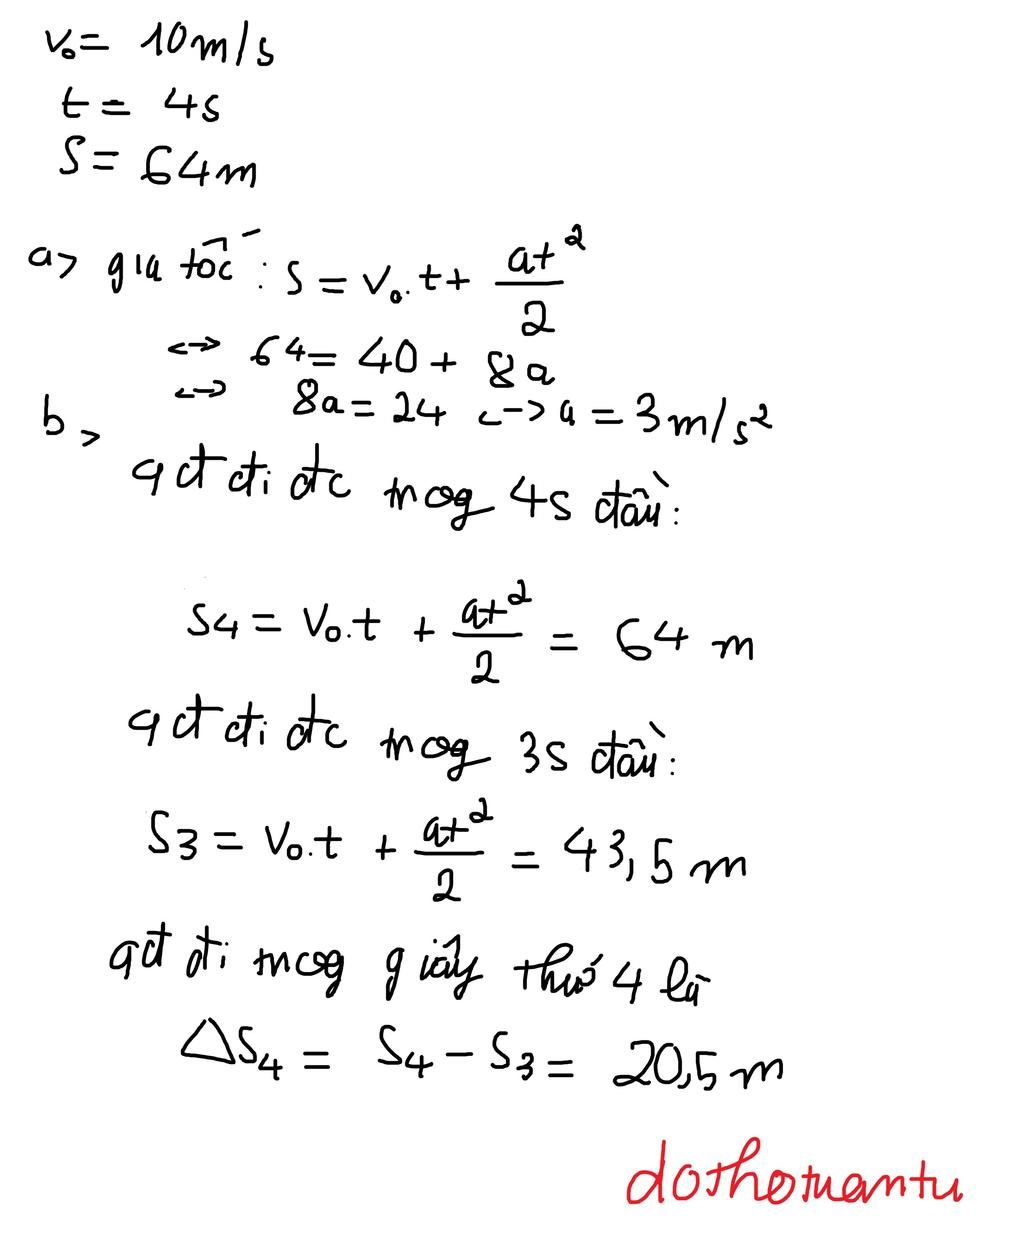 v₀ = 10m/s
t = 4s
S = 64m
a> gia tốc : S = v₀.t + at²/2
<-> 64 = 40 + 8a
<-> 8a = 24 <-> a = 3m/s²
b>
qđ đi đc trog 4s đầu:
S4 = V₀.t + at²/2 = 64 m
qđ đi đc trog 3s đầu:
S3 = V₀.t + at²/2 = 43,5 m
qđ đi trog giây thứ 4 là
ΔS₄ = S₄ - S₃ = 20,5 m
dothotuantu